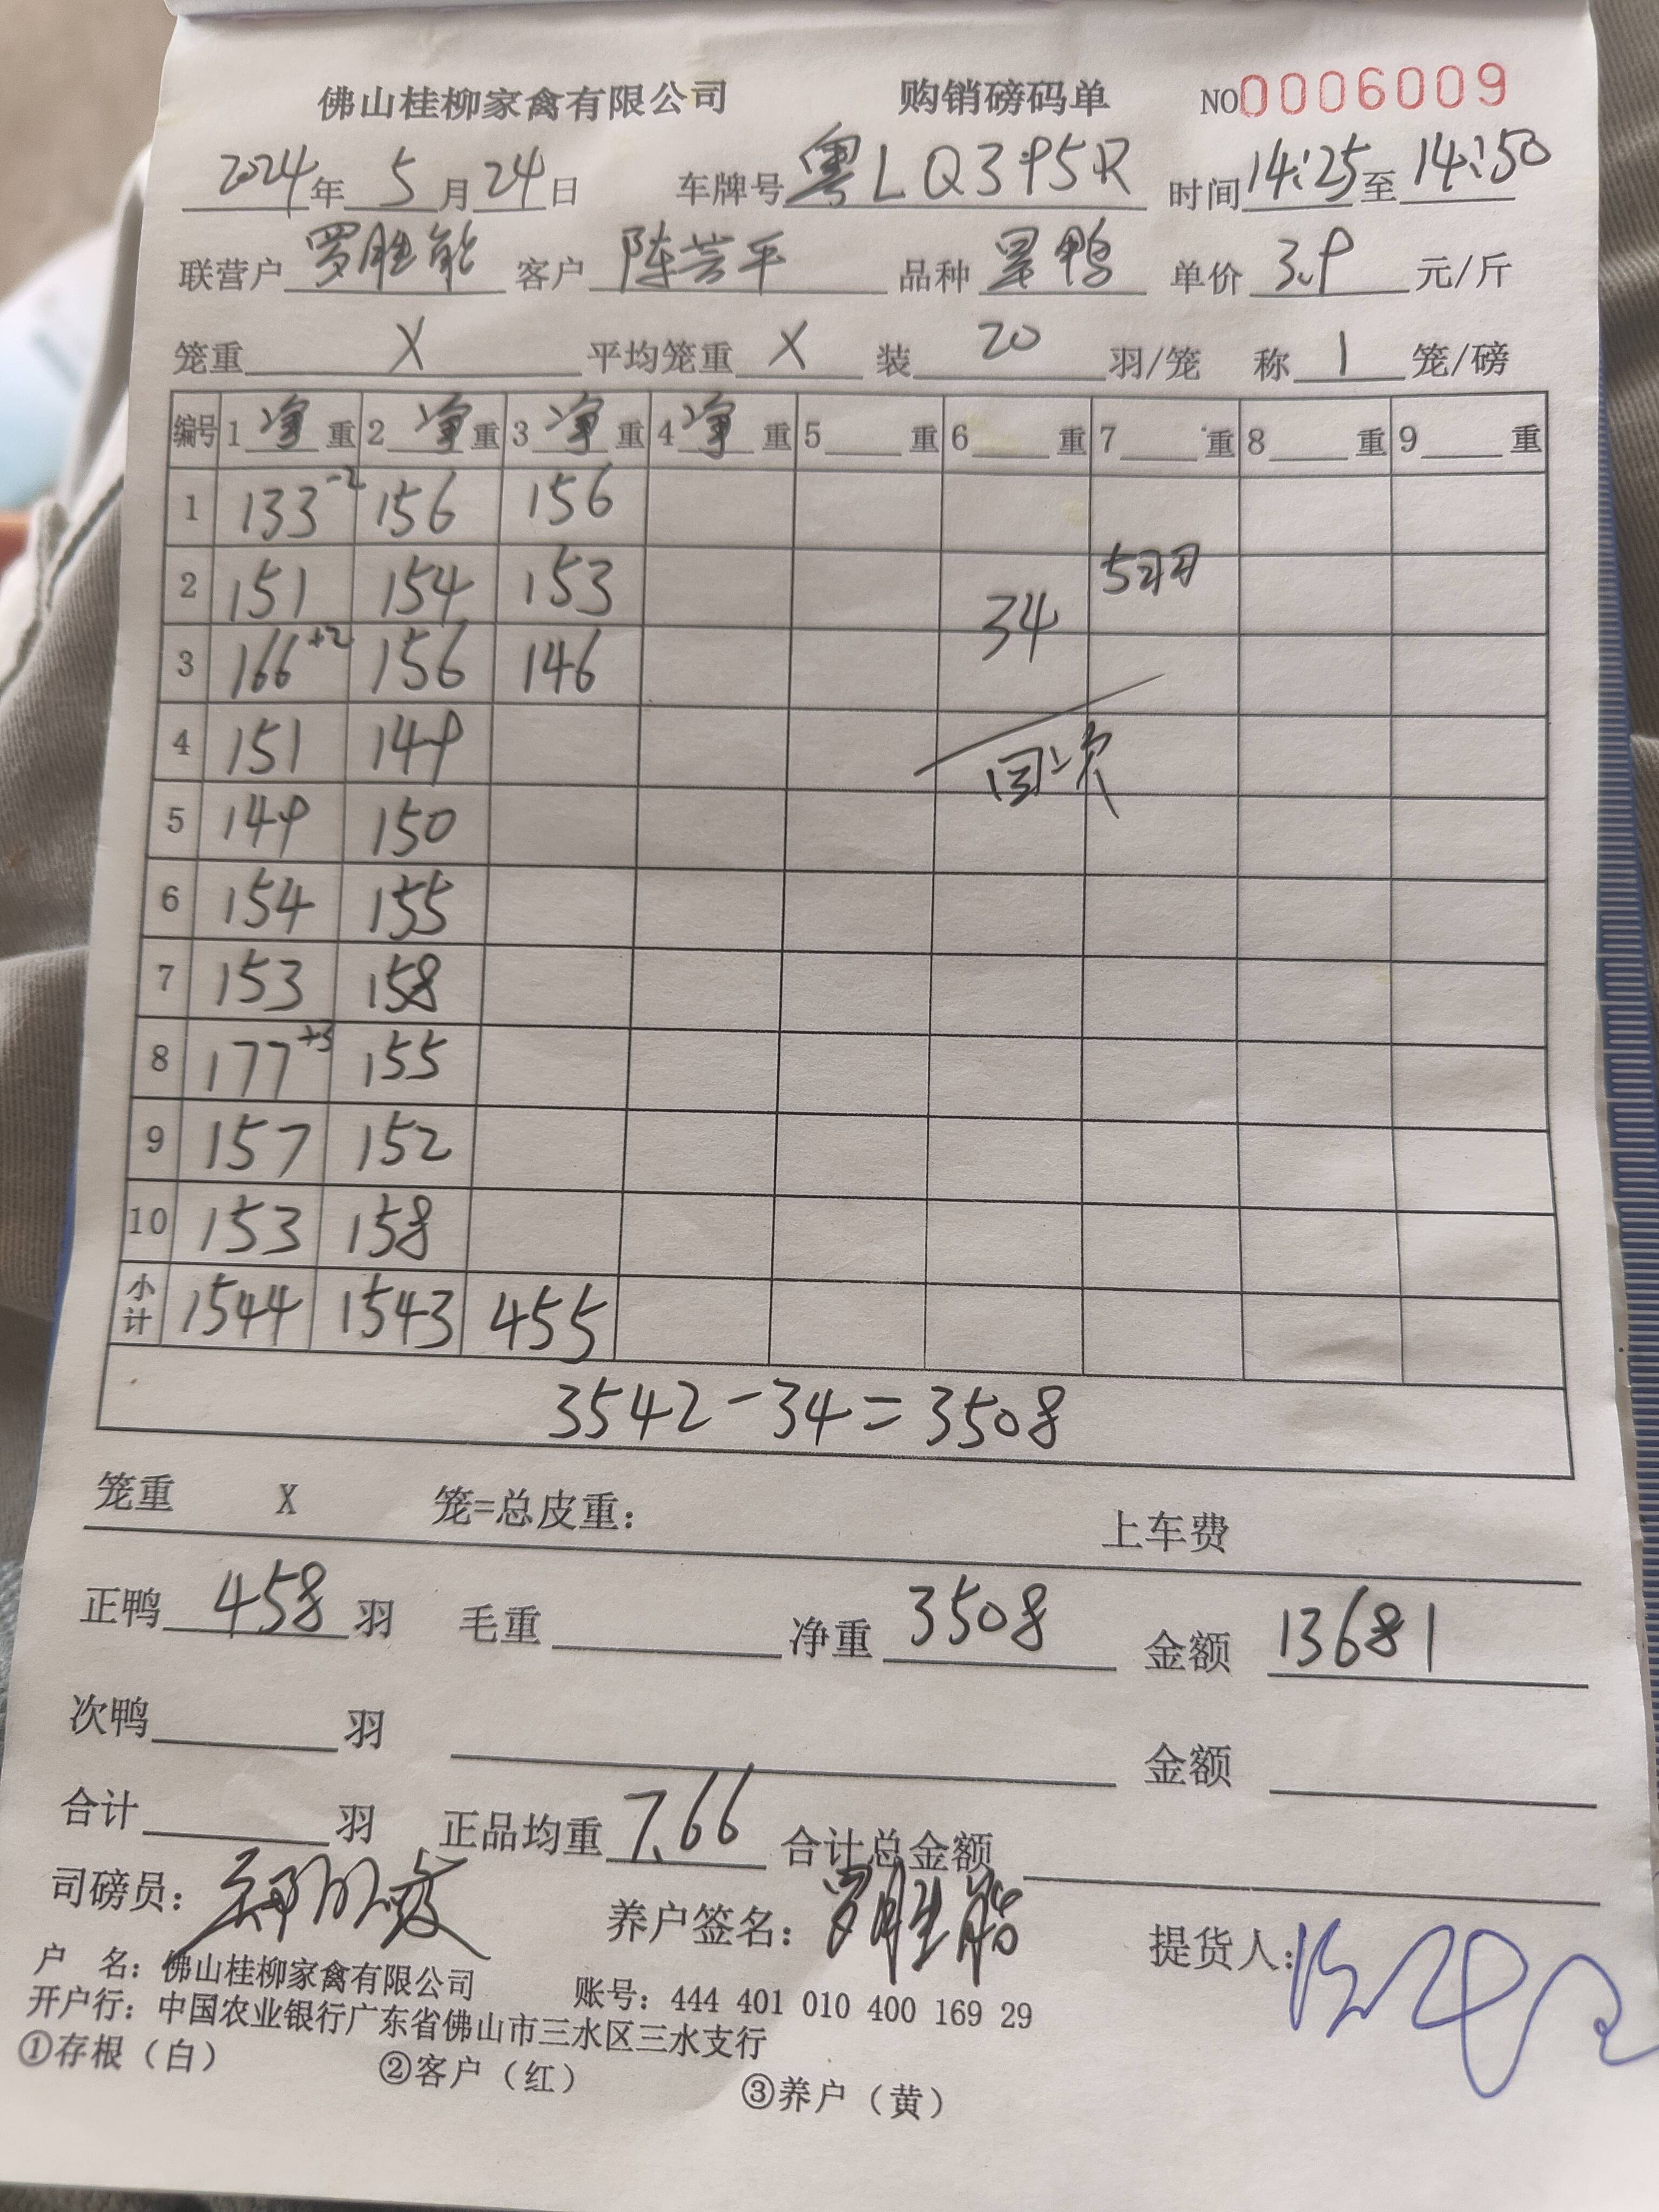 佛山桂柳家禽有限公司 购销磅码单 NO0006009
2024年5月24日 车牌号粤LQ395R 时间14:25至14:50
联营户罗胜能 客户陈芸平 品种 鸭 单价3.9元/斤
笼重 X 平均笼重 X 装 20 羽/笼 称 1 笼/磅
编号 1净重 2净重 3净重 4净重 5 重 6 重 7 重 8 重 9 重
1 133-2 156 156
2 151 154 153 34 5羽
3 166+2 156 146
4 151 149 回次
5 149 150
6 154 155
7 153 158
8 177+3 155
9 157 152
10 153 158
小计 1544 1543 455
3542-34=3508
笼重 X 笼=总皮重: 上车费
正鸭 458 羽 毛重 净重 3508 金额 13681
次鸭 羽 金额
合计 羽 正品均重 7.66 合计总金额
司磅员: 养户签名:罗胜能 提货人:
户 名:佛山桂柳家禽有限公司 账号:444 401 010 400 169 29
开户行:中国农业银行广东省佛山市三水区三水支行
①存根(白) ②客户(红) ③养户(黄)